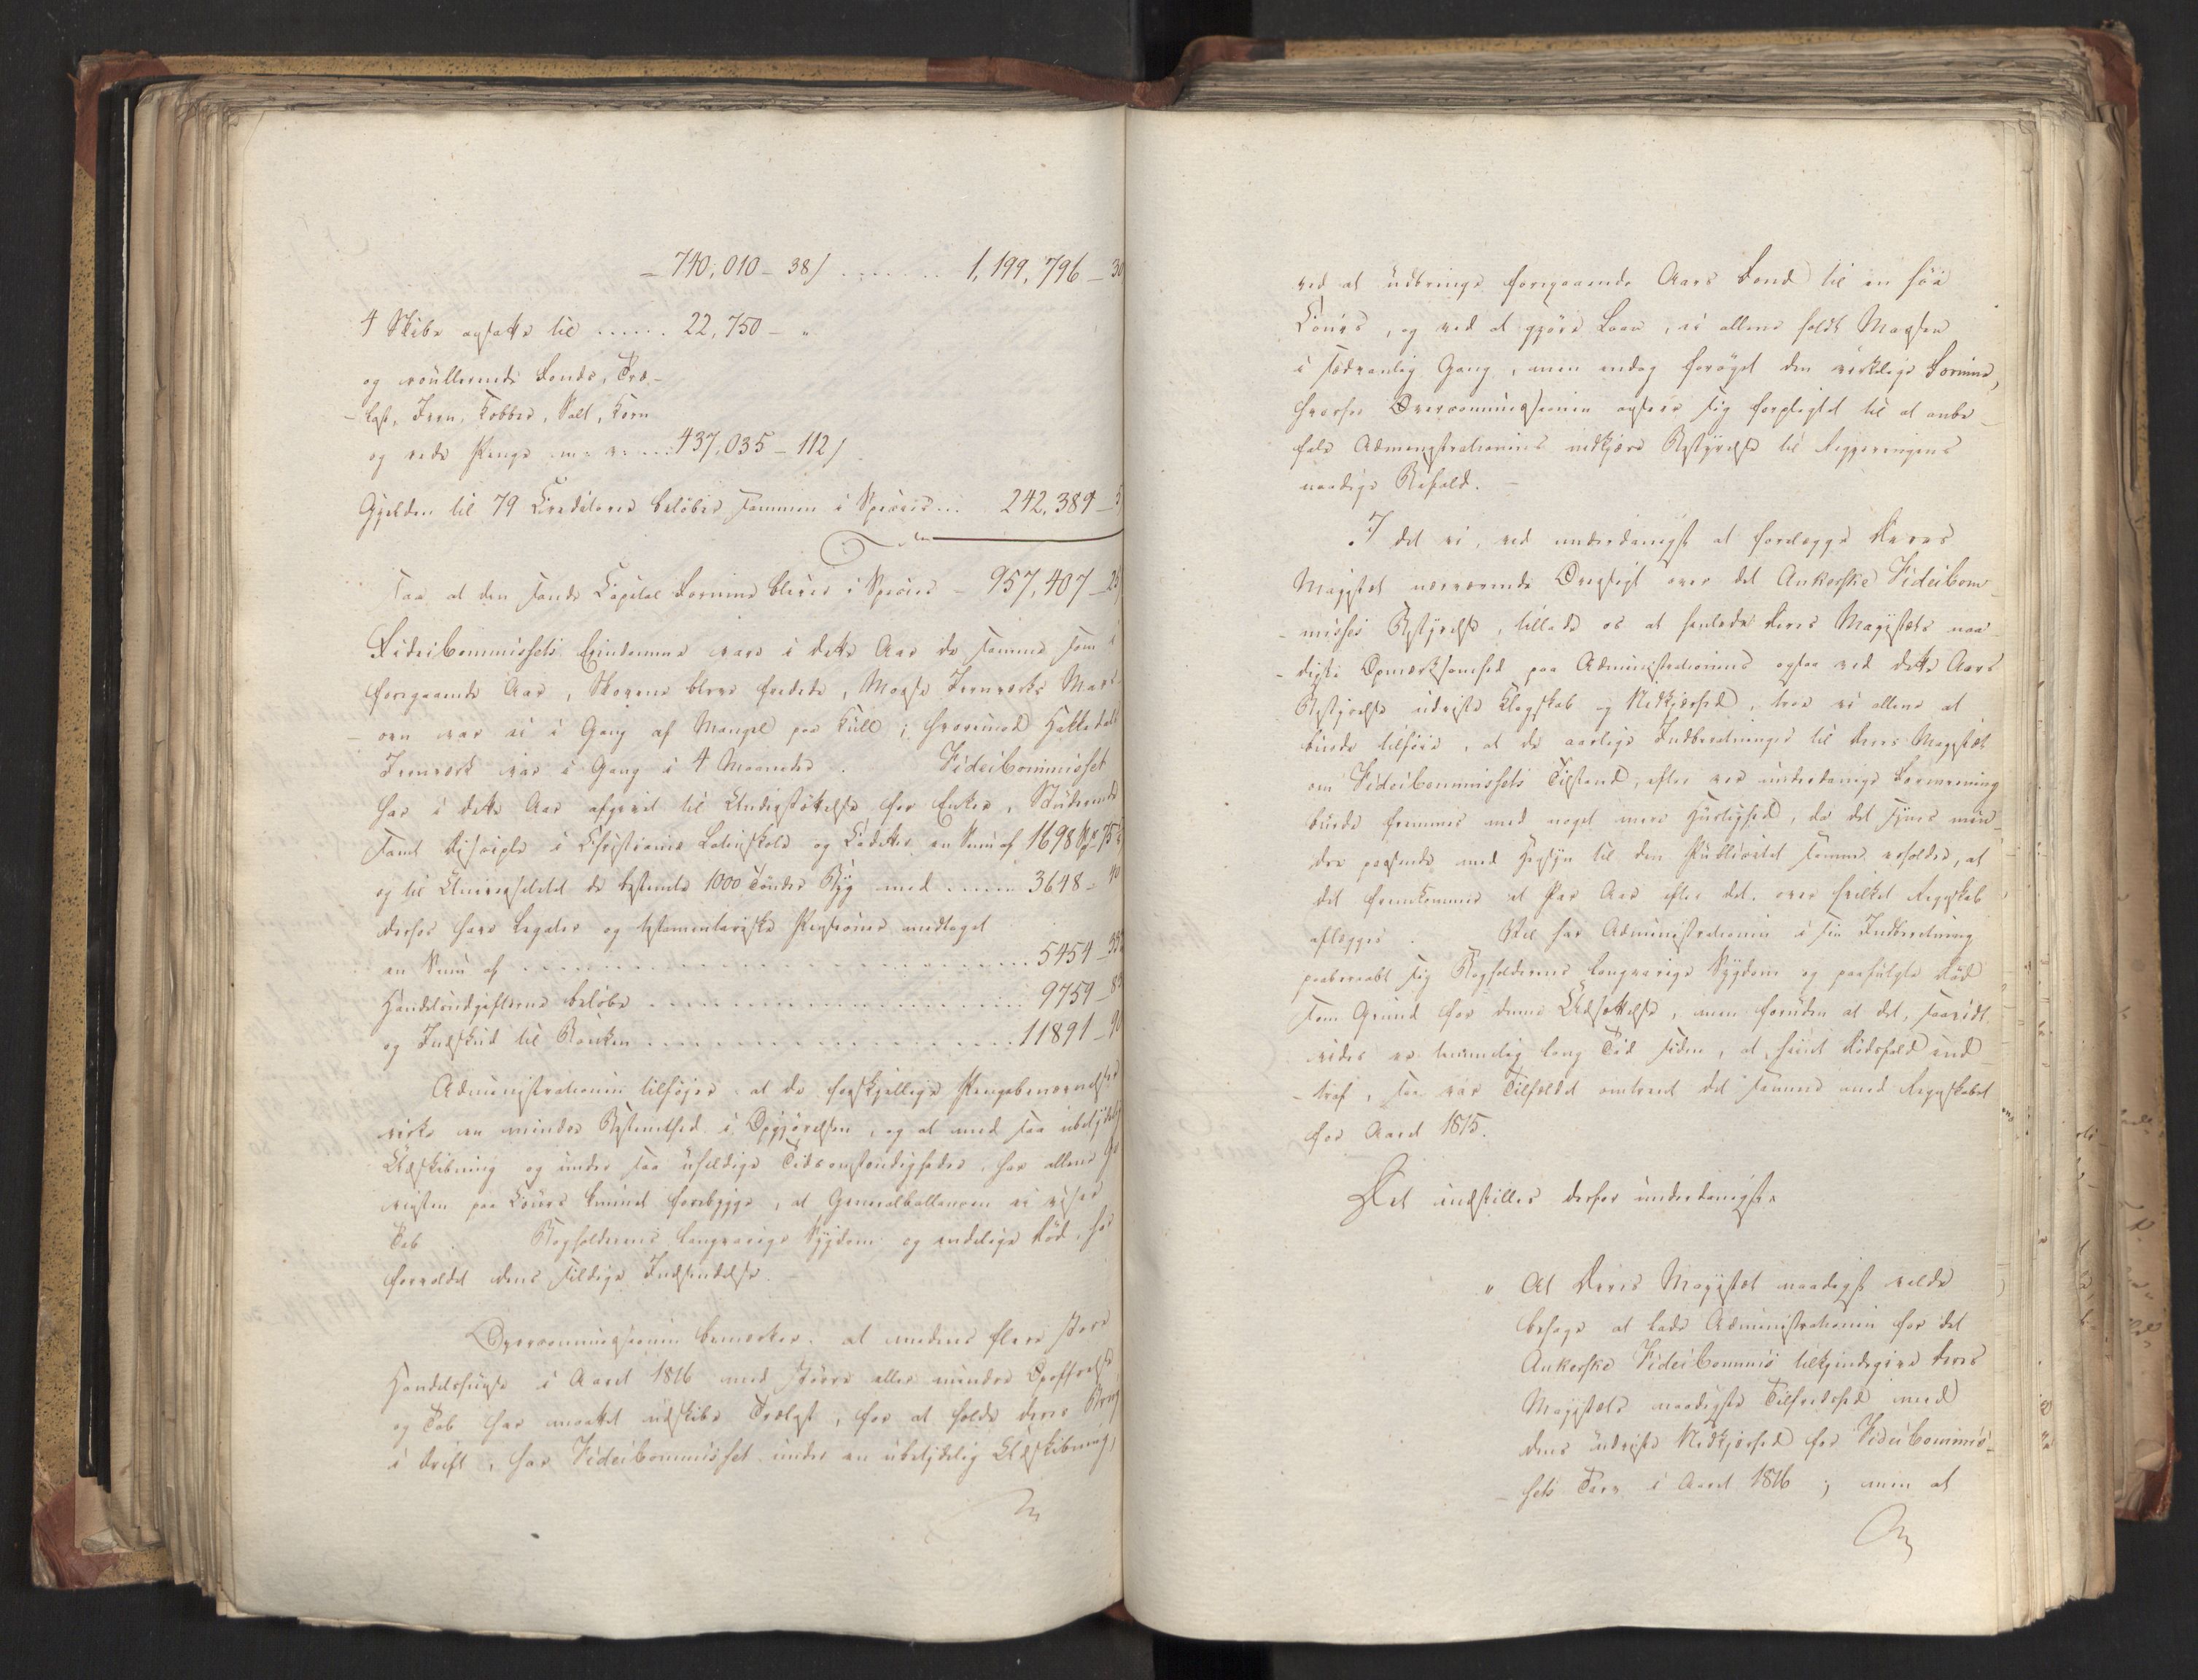 – 740,010 – 38/ . . . . . . . 1,199,796 – 30
4 Skibe ansatte til . . . . . . 22,750 – "
og roullerende Fonds, Træ-
-last, Jern, Kobber, Salt, Korn
og rede Penge m: v: . . . 437,035 – 112/
Gjelden til 79 Creditorer beløber sammen i Species . . . 242,389 – 5
saa at den sande Capital Formue bliver i Species – 957,407 – 25
FideiCommissets Eiendomme vare i dette Aar de samme som i
foregaaende Aar, Skovene bleve fredede, Moss Jernverks Mas-
-ovn var ei i Gang af Mangel paa Kull; hvorimod Hakkedals
Jernverk var i Gang i 4 Maaneder. FideiCommisset
har i dette Aar afgivet til Understøttelse for Enker, Studerende
samt Disciple i Christiania Latinskole og Cadetter en Sum af 1698 Sp. 75
og til Universitetet de bestemte 1000 Tønder Byg med . . . . . 3648 – 40
derfor have Legater og testamentariske Pensioner medtaget
en Sum af . . . . . . . . . . . . . . . 5454 – 33
Handelsudgifterne beløbe . . . . . . . . . . . . 9759 – 83
og Indskud til Banken . . . . . . . . . . . . 11891 – 90
Administrationen tilføjer at de forskjellige Pengebenævnelser
virke en mindre Bestemthed i Opgjørelsen, og at med saa ubetydelig
Udskibning og under saa uheldige Tidsomstændigheder, har allene Ge-
vinsten paa Cours kunnet forebygge, at Generalballancen ei viser
Tab. Bogholderens langvarige Sygdom og endelige Død, har
forvoldt dens sildige Indsendelse.
Overcommissionen bemærker at medens flere store
Handelshuse i Aaret 1816 med større eller mindre Opoffrelse
og Tab har maattet udskibe Trælast, for at holde deres Brug
i Drift, har FideiCommisset under en ubetydelig Udskibning,
ved at udbringe foregaaende Aars Fond til en høi
Cours, og ved at gjøre Laan, ei allene holdt Massen
i sædvanlig Gang, men endog forøget den virkelige Formue,
hvorfor Overcommissionen anseer sig forpligtet til at anbe-
fale Administrationens nidkjære Bestyrelse til Regjeringens
naadige Bifald. –
I det vi, ved underdanigst at forelægge Deres
Majestæt nærværende Oversigt over det Ankerske FideiCom-
-misses Bestyrelse, tillade os at henlede Deres Majestæts naa-
-digste Opmærksomhed paa Administrationens ogsaa ved dette Aars
Bestyrelse udviste Klogskab og Nidkjærhed, troe vi allene at
burde tilføie, at de aarlige Indberetninger til Deres Majestæt
om FideiCommissets Tilstand, efter vor underdanige Formening
burde fremmes med noget mere Hurtighed, da det synes min-
dre passende med Hensyn til den Publicitet samme erholder, at
det fremkommer et Par Aar efter det, over hvilket Regnskab
aflægges. Vel har Administrationen i sin Indberetning
paaberaabt sig Bogholderens langvarige Sygdom og paafulgte Død
som Grund for denne Udsættelse, men foruden at det, saavidt
vides er temmelig lang Tid siden, at hiint Dødsfald ind-
-traf, saa var Tilfældet omtrent det samme med Regnskabet
for Aaret 1815.
Det indstilles derfor underdanigst:
" At Deres Majestæt naadigst vilde
behage at lade Administrationen for det
Ankerske FideiCommis tilkjendegive Deres
Majestæts naadigste Tilfredshed med
dens udviste Nidkjærhed for FideiCommis-
-sets Tarv i Aaret 1816; men at